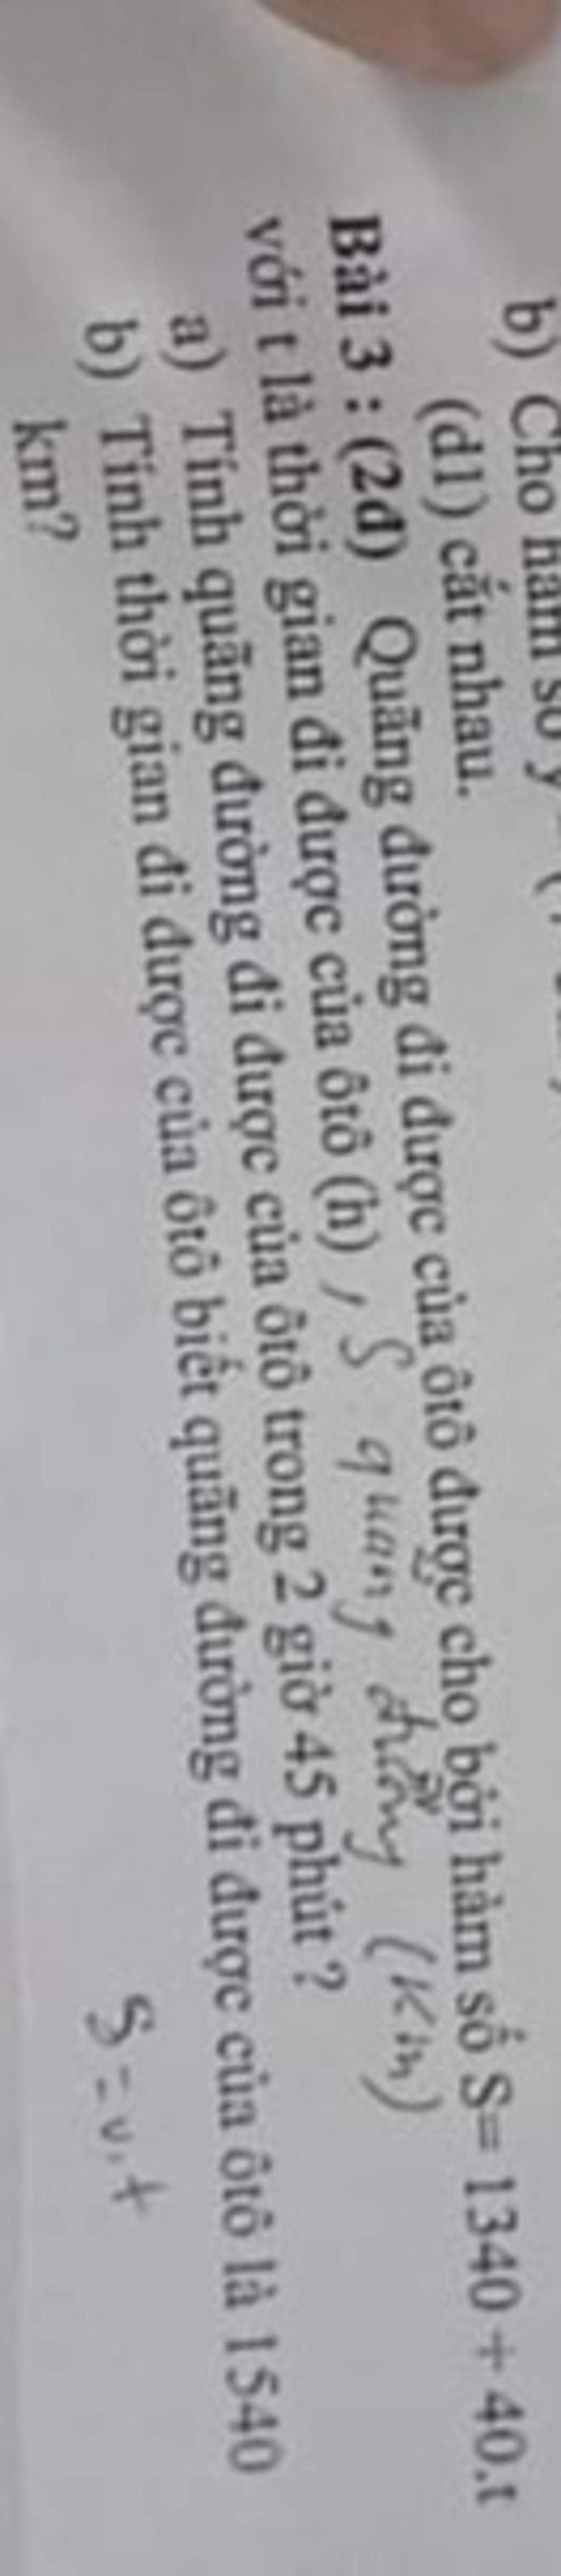 b) Cho hàm số y
(d1) cắt nhau.
Bài 3 : (2đ) Quãng đường đi được của ôtô được cho bởi hàm số S= 1340 + 40.t
với t là thời gian đi được của ôtô (h) , S quãng đường (km)
a) Tính quãng đường đi được của ôtô trong 2 giờ 45 phút ?
b) Tính thời gian đi được của ôtô biết quãng đường đi được của ôtô là 1540
km?
S = v.t